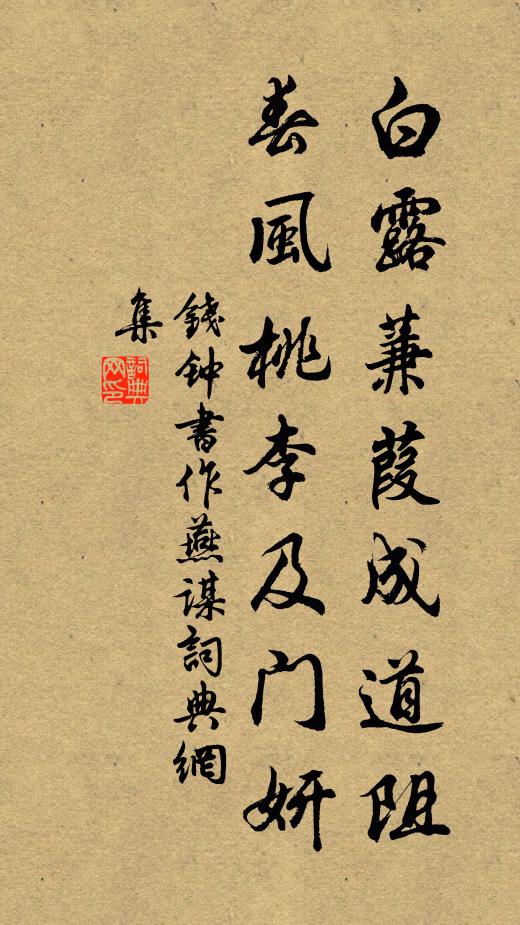 白露蒹葭成道阻
春風桃李及门妍
錢钟書作燕谋詞典網
集
詞典网印